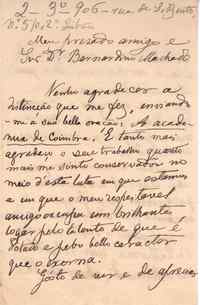 2-3º-906-rua de S. Bento,
Nº 5/0, 2º Lisboa
Meu presado amigo e
Snr. Dr. Bernardino Machado
Venho agradecer a
distincção que me fez, enviando-
-me a sua bella oração: A acade-
mia de Coimbra. E tanto mais
agradeço o seu trabalho quanto
mais me sinto conservador no
meio d'esta lucta em que estamos
e em que o meu respeitavel
amigo occupa um brilhante
logar pelo talento de que é
dotado e pelo bello caracter
que o exorna.
Gósto de ver e de apreciar